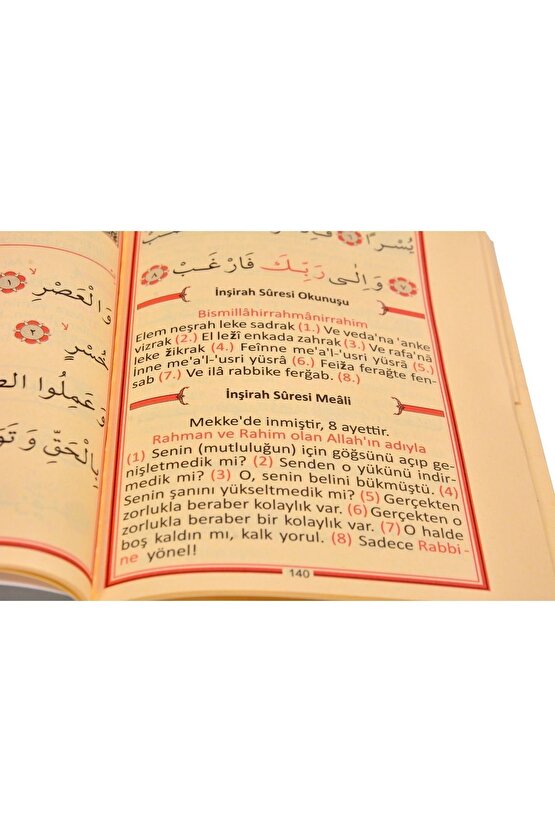 يُسْرًا ﴿٦﴾
﴿٧﴾ وَاِلٰى رَبِّكَ فَارْغَبْ ﴿٨﴾
İnşirah Sûresi Okunuşu
Bismillâhirrahmânirrahim
Elem neşrah leke sadrak (1.) Ve veda'na 'anke
vizrak (2.) El leżî enkada zahrak (3.) Ve rafa'nâ
leke żikrak (4.) Feînne me'a'l-'usri yüsrâ (5.)
İnne me'a'l-'usri yüsrâ (6.) Feiża ferağte fen-
sab (7.) Ve ilâ rabbike ferğab. (8.)
İnşirah Sûresi Meâli
Mekke'de inmiştir, 8 ayettir.
Rahman ve Rahim olan Allah'ın adıyla
(1) Senin (mutluluğun) için göğsünü açıp ge-
nişletmedik mi? (2) Senden o yükünü indir-
medik mi? (3) O, senin belini bükmüştü. (4)
Senin şanını yükseltmedik mi? (5) Gerçekten
zorlukla beraber kolaylık var. (6) Gerçekten o
zorlukla beraber bir kolaylık var. (7) O halde
boş kaldın mı, kalk yorul. (8) Sadece Rabbi-
ne yönel!
140
وَالْعَصْرِ ﴿١﴾
خُسْرٍ ﴿٢﴾
وَعَمِلُوا
بِالْحَقِّ